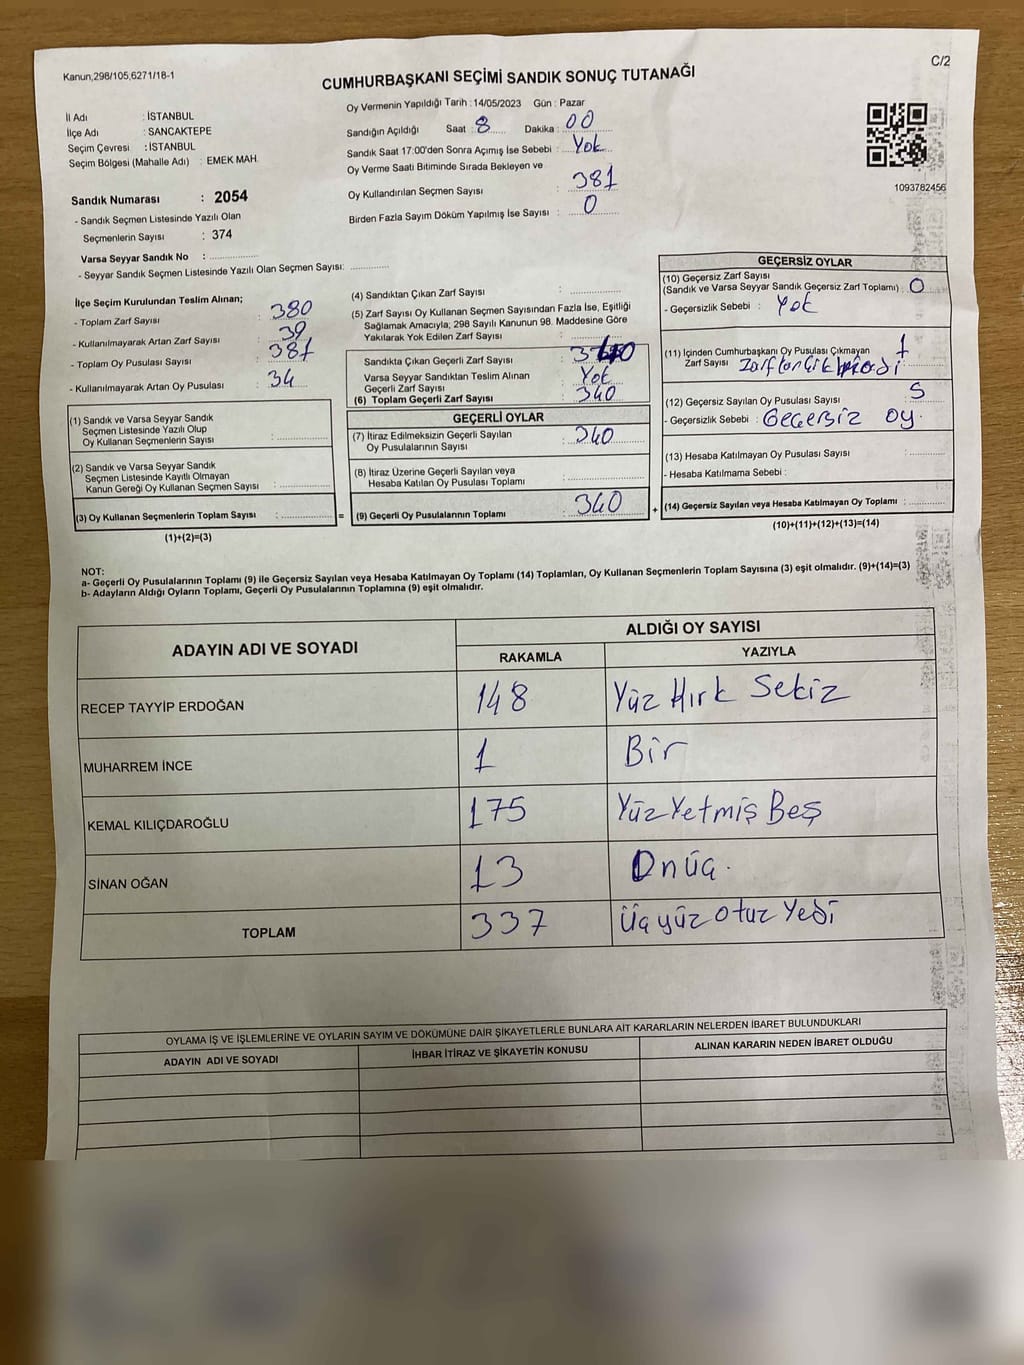 Kanun,298/105,6271/18-1
C/2
CUMHURBAŞKANI SEÇİMİ SANDIK SONUÇ TUTANAĞI
İl Adı : İSTANBUL
İlçe Adı : SANCAKTEPE
Seçim Çevresi : İSTANBUL
Seçim Bölgesi (Mahalle Adı) : EMEK MAH.
Sandık Numarası : 2054
- Sandık Seçmen Listesinde Yazılı Olan
Seçmenlerin Sayısı : 374
Varsa Seyyar Sandık No :
- Seyyar Sandık Seçmen Listesinde Yazılı Olan Seçmen Sayısı:
Oy Vermenin Yapıldığı Tarih : 14/05/2023 Gün : Pazar
Sandığın Açıldığı Saat 8 Dakika : 00
Sandık Saat 17:00'den Sonra Açımış İse Sebebi : Yok
Oy Verme Saati Bitiminde Sırada Bekleyen ve
Oy Kullandırılan Seçmen Sayısı : 381
Birden Fazla Sayım Döküm Yapılmış İse Sayısı : 0
1093782456
İlçe Seçim Kurulundan Teslim Alınan;
- Toplam Zarf Sayısı : 380
- Kullanılmayarak Artan Zarf Sayısı : 39
- Toplam Oy Pusulası Sayısı : 381
- Kullanılmayarak Artan Oy Pusulası : 34
(1) Sandık ve Varsa Seyyar Sandık
Seçmen Listesinde Yazılı Olup
Oy Kullanan Seçmenlerin Sayısı :
(2) Sandık ve Varsa Seyyar Sandık
Seçmen Listesinde Kayıtlı Olmayan
Kanun Gereği Oy Kullanan Seçmen Sayısı :
(3) Oy Kullanan Seçmenlerin Toplam Sayısı :
(1)+(2)=(3)
=
(4) Sandıktan Çıkan Zarf Sayısı :
(5) Zarf Sayısı Oy Kullanan Seçmen Sayısından Fazla İse, Eşitliği
Sağlamak Amacıyla; 298 Sayılı Kanunun 98. Maddesine Göre
Yakılarak Yok Edilen Zarf Sayısı :
Sandıkta Çıkan Geçerli Zarf Sayısı :
Varsa Seyyar Sandıktan Teslim Alınan
Geçerli Zarf Sayısı : Yok
(6) Toplam Geçerli Zarf Sayısı : 340
GEÇERLİ OYLAR
(7) İtiraz Edilmeksizin Geçerli Sayılan
Oy Pusulalarının Sayısı : 340
(8) İtiraz Üzerine Geçerli Sayılan veya
Hesaba Katılan Oy Pusulası Toplamı :
(9) Geçerli Oy Pusulalarının Toplamı : 340
+
GEÇERSİZ OYLAR
(10) Geçersiz Zarf Sayısı
(Sandık ve Varsa Seyyar Sandık Geçersiz Zarf Toplamı) : 0
- Geçersizlik Sebebi : Yok
(11) İçinden Cumhurbaşkanı Oy Pusulası Çıkmayan
Zarf Sayısı 1
(12) Geçersiz Sayılan Oy Pusulası Sayısı : 5
- Geçersizlik Sebebi : Geçersiz oy.
(13) Hesaba Katılmayan Oy Pusulası Sayısı :
- Hesaba Katılmama Sebebi :
(14) Geçersiz Sayılan veya Hesaba Katılmayan Oy Toplamı :
(10)+(11)+(12)+(13)=(14)
NOT:
a- Geçerli Oy Pusulalarının Toplamı (9) ile Geçersiz Sayılan veya Hesaba Katılmayan Oy Toplamı (14) Toplamları, Oy Kullanan Seçmenlerin Toplam Sayısına (3) eşit olmalıdır. (9)+(14)=(3)
b- Adayların Aldığı Oyların Toplamı, Geçerli Oy Pusulalarının Toplamına (9) eşit olmalıdır.
ADAYIN ADI VE SOYADI
ALDIĞI OY SAYISI
RAKAMLA YAZIYLA
RECEP TAYYİP ERDOĞAN 148 Yüz Kırk Sekiz
MUHARREM İNCE 1 Bir
KEMAL KILIÇDAROĞLU 175 Yüz Yetmiş Beş
SİNAN OĞAN 13 Onüç.
TOPLAM 337 Üçyüz Otuz Yedi
OYLAMA İŞ VE İŞLEMLERİNE VE OYLARIN SAYIM VE DÖKÜMÜNE DAİR ŞİKAYETLERLE BUNLARA AİT KARARLARIN NELERDEN İBARET BULUNDUKLARI
ADAYIN ADI VE SOYADI İHBAR İTİRAZ VE ŞİKAYETİN KONUSU ALINAN KARARIN NEDEN İBARET OLDUĞU